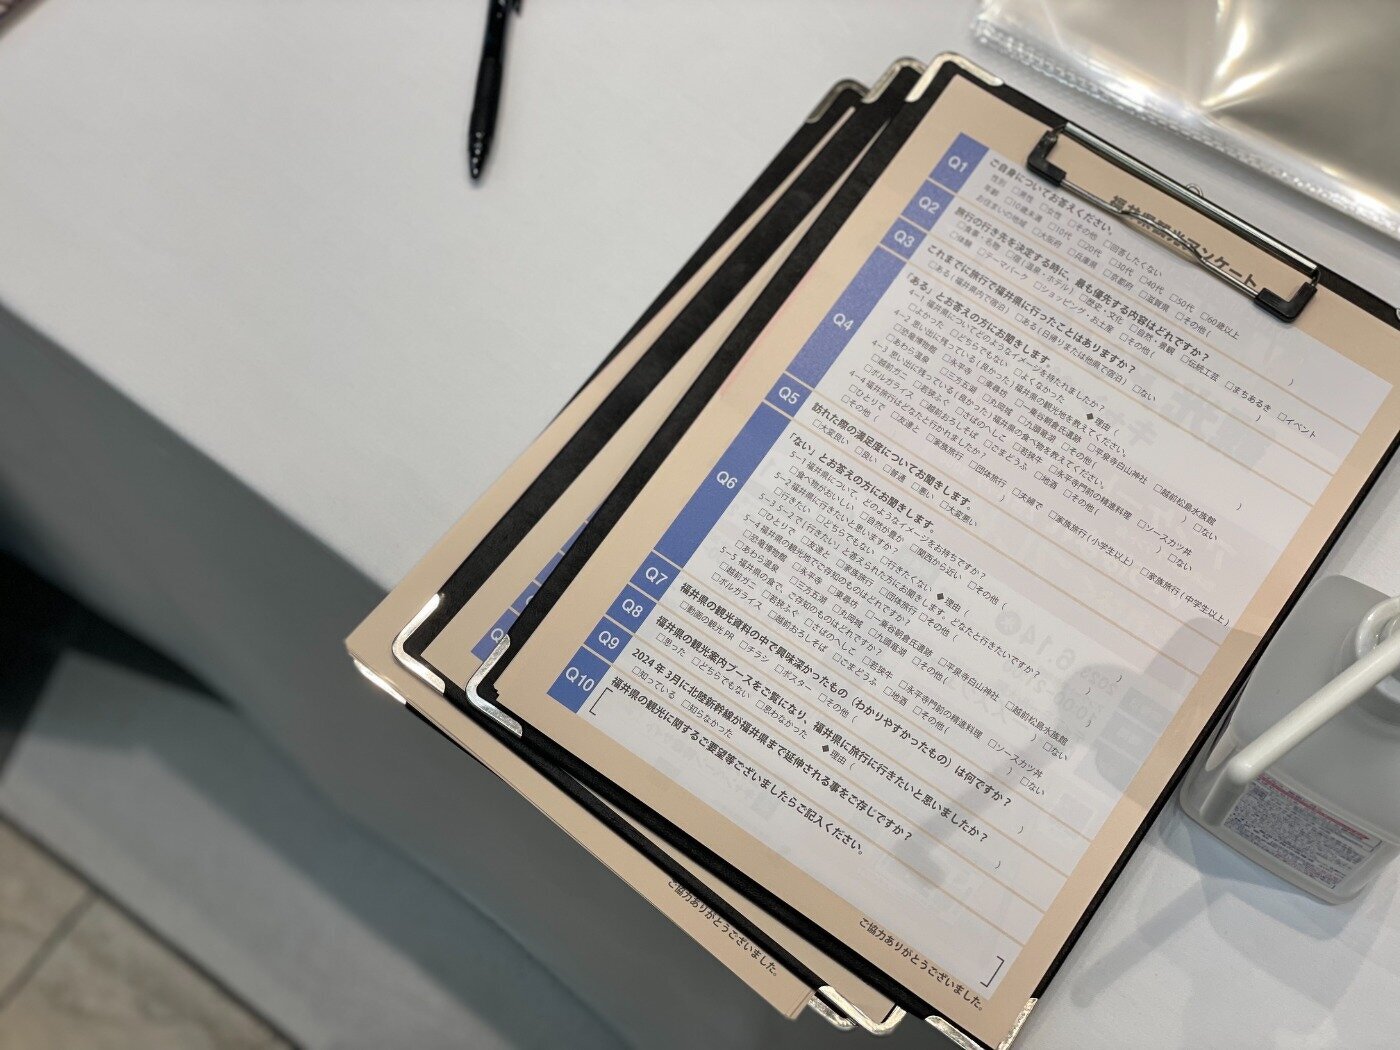 福井県観光アンケート
Q1 ご自身についてお答えください。
性別 □男性 □女性 □その他 □回答したくない
年齢 □10歳未満 □10代 □20代 □30代 □40代 □50代 □60歳以上
お住まいの地域 □大阪府 □兵庫県 □京都府 □滋賀県 □その他(
Q2 旅行の行き先を決定する時に、最も優先する内容はどれですか?
□食事・名物 □宿(温泉・ホテル) □歴史・文化 □自然・景観 □伝統工芸 □まちあるき □イベント
□体験 □テーマパーク □ショッピング・お土産 □その他( )
Q3 これまでに旅行で福井県に行ったことはありますか?
□ある(福井県内で宿泊) □ある(日帰りまたは他県で宿泊) □ない
Q4 「ある」とお答えの方にお聞きします。
4-1 福井県についてどのようなイメージを持たれましたか?
□よかった □どちらでもない □よくなかった ◆理由( )
4-2 思い出に残っている(良かった)福井県の観光地を教えてください。
□恐竜博物館 □永平寺 □東尋坊 □一乗谷朝倉氏遺跡 □平泉寺白山神社 □越前松島水族館
□あわら温泉 □三方五湖 □丸岡城 □九頭竜湖 □その他( ) □ない
4-3 思い出に残っている(良かった)福井県の食べ物を教えてください。
□越前ガニ □若狭ふぐ □さばのへしこ □若狭牛 □永平寺門前の精進料理 □ソースカツ丼
□ボルガライス □越前おろしそば □ごまどうふ □地酒 □その他( ) □ない
4-4 福井旅行はどなたと行かれましたか?
□ひとりで □友達と □家族旅行 □団体旅行 □夫婦で □家族旅行(小学生以上) □家族旅行(中学生以上)
□その他( )
Q5 訪れた際の満足度についてお聞きします。
□大変良い □良い □普通 □悪い □大変悪い
Q6 「ない」とお答えの方にお聞きします。
5-1 福井県について、どのようなイメージをお持ちですか?
□食べ物がおいしい □自然が豊か □関西から近い □その他( )
5-2 福井県に行きたいと思いますか?
□行きたい □どちらでもない □行きたくない ◆理由( )
5-3 5-2で「行きたい」と答えられた方にお聞きします。どなたと行きたいですか?
□ひとりで □友達と □家族旅行 □団体旅行 □その他( )
5-4 福井県の観光地でご存知のものはどれですか?
□恐竜博物館 □永平寺 □東尋坊 □一乗谷朝倉氏遺跡 □平泉寺白山神社 □越前松島水族館
□あわら温泉 □三方五湖 □丸岡城 □九頭竜湖 □その他( ) □ない
5-5 福井県の食で、ご存知のものはどれですか?
□越前ガニ □若狭ふぐ □さばのへしこ □若狭牛 □永平寺門前の精進料理 □ソースカツ丼
□ボルガライス □越前おろしそば □ごまどうふ □地酒 □その他( ) □ない
Q7 福井県の観光資料の中で興味深かったもの(わかりやすかったもの)は何ですか?
□動画の観光PR □チラシ □ポスター □その他( )
Q8 福井県の観光案内ブースをご覧になり、福井県に旅行に行きたいと思いましたか?
□思った □どちらでもない □思わなかった ◆理由( )
Q9 2024年3月に北陸新幹線が福井県まで延伸される事をご存じですか?
□知っている □知らなかった
Q10 福井県の観光に関するご要望等ございましたらご記入ください。
ご協力ありがとうございました。
ご協力ありがとうございました。